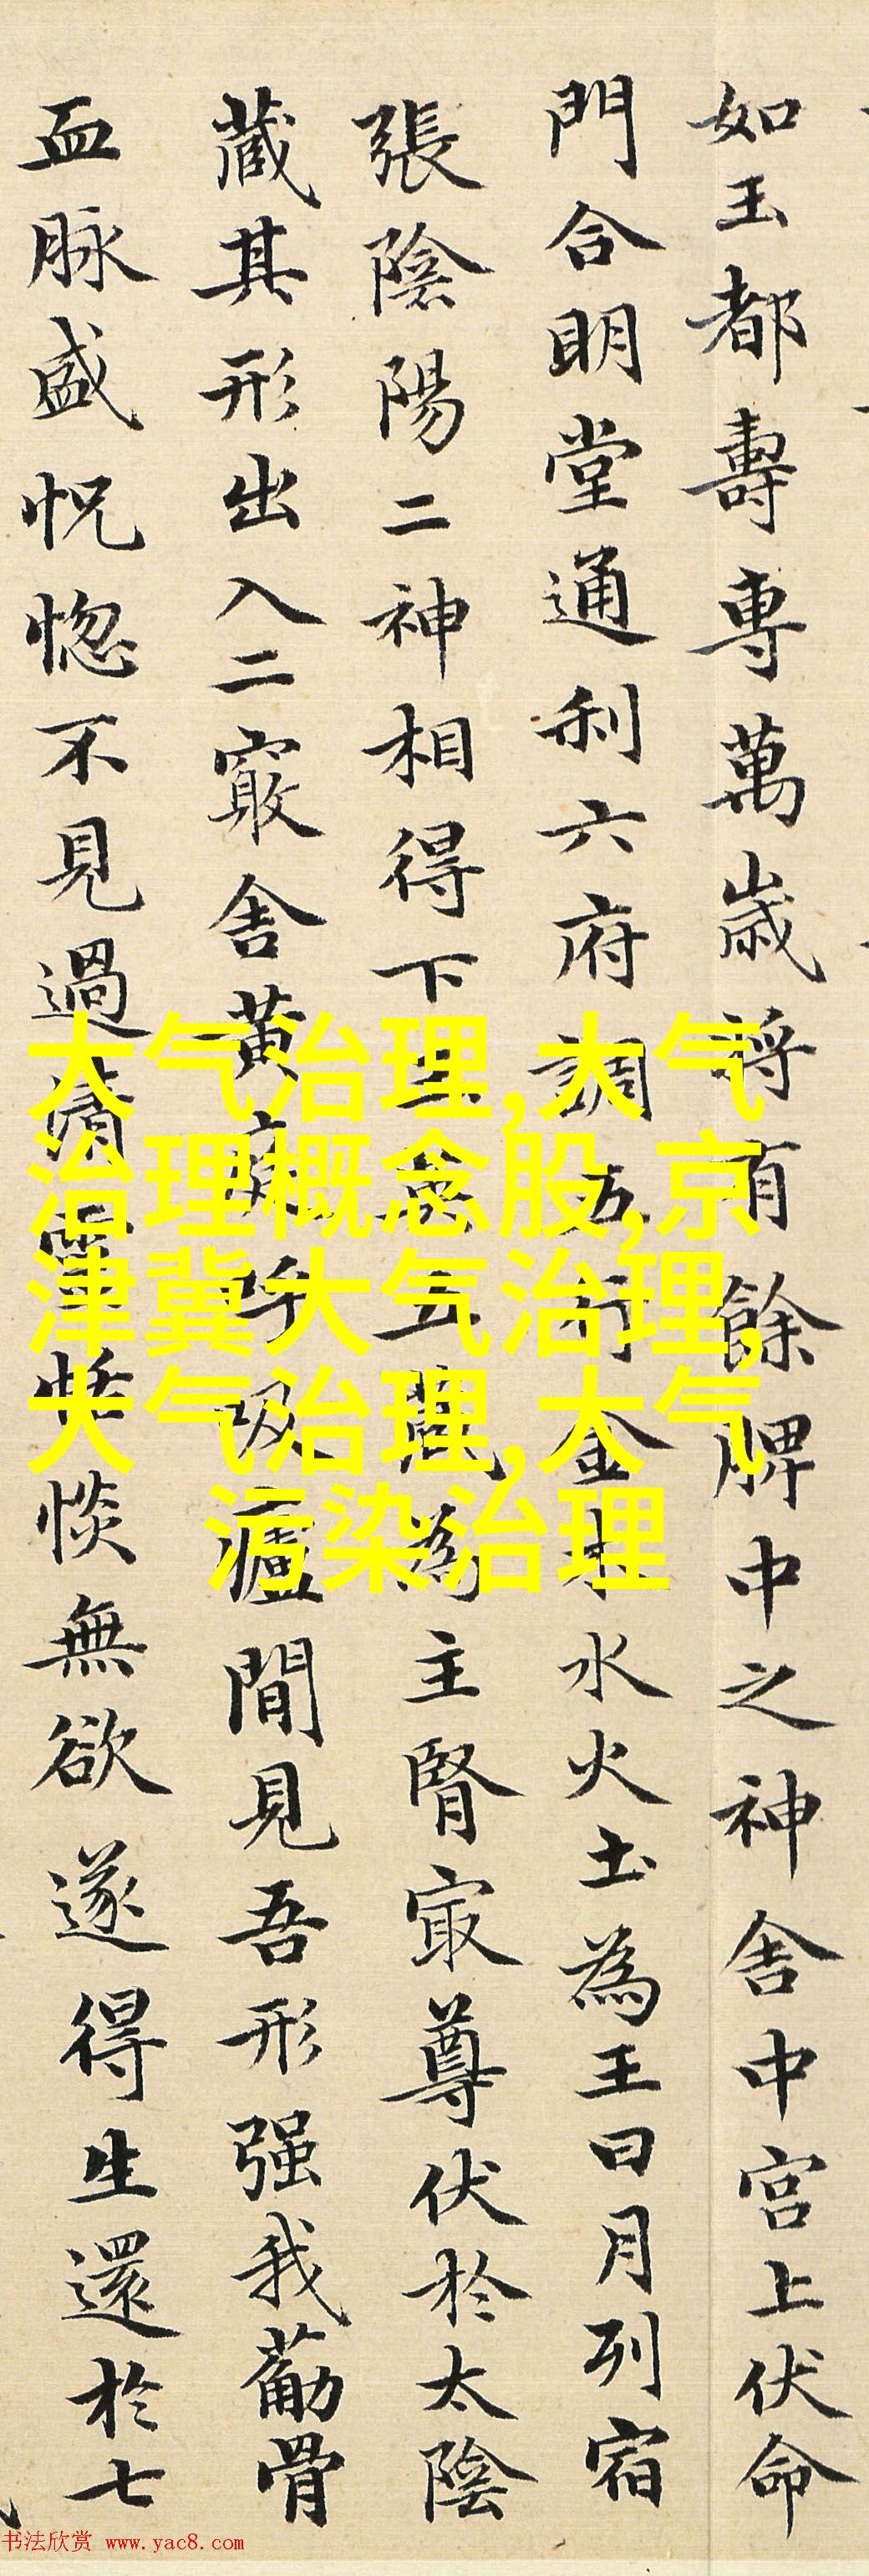 如玉都壽專萬歲將有餘脾中之神舍中宮上伏命
門合明堂通利六府調五行金木水火土為王日月列宿
張陰陽二神相得下玉英五藏為主腎寂尊伏於太陰
藏其形出入二竅舍黃庭呼吸廬間見吾形强我葡骨
血脉盛怳惚不見過清靈恬惔無欲遂得生還於七
大气治理,大气
治理概念股,京
津冀大气治理,
大气治理,大气
污染治理
书法欣赏 www.yac8.com